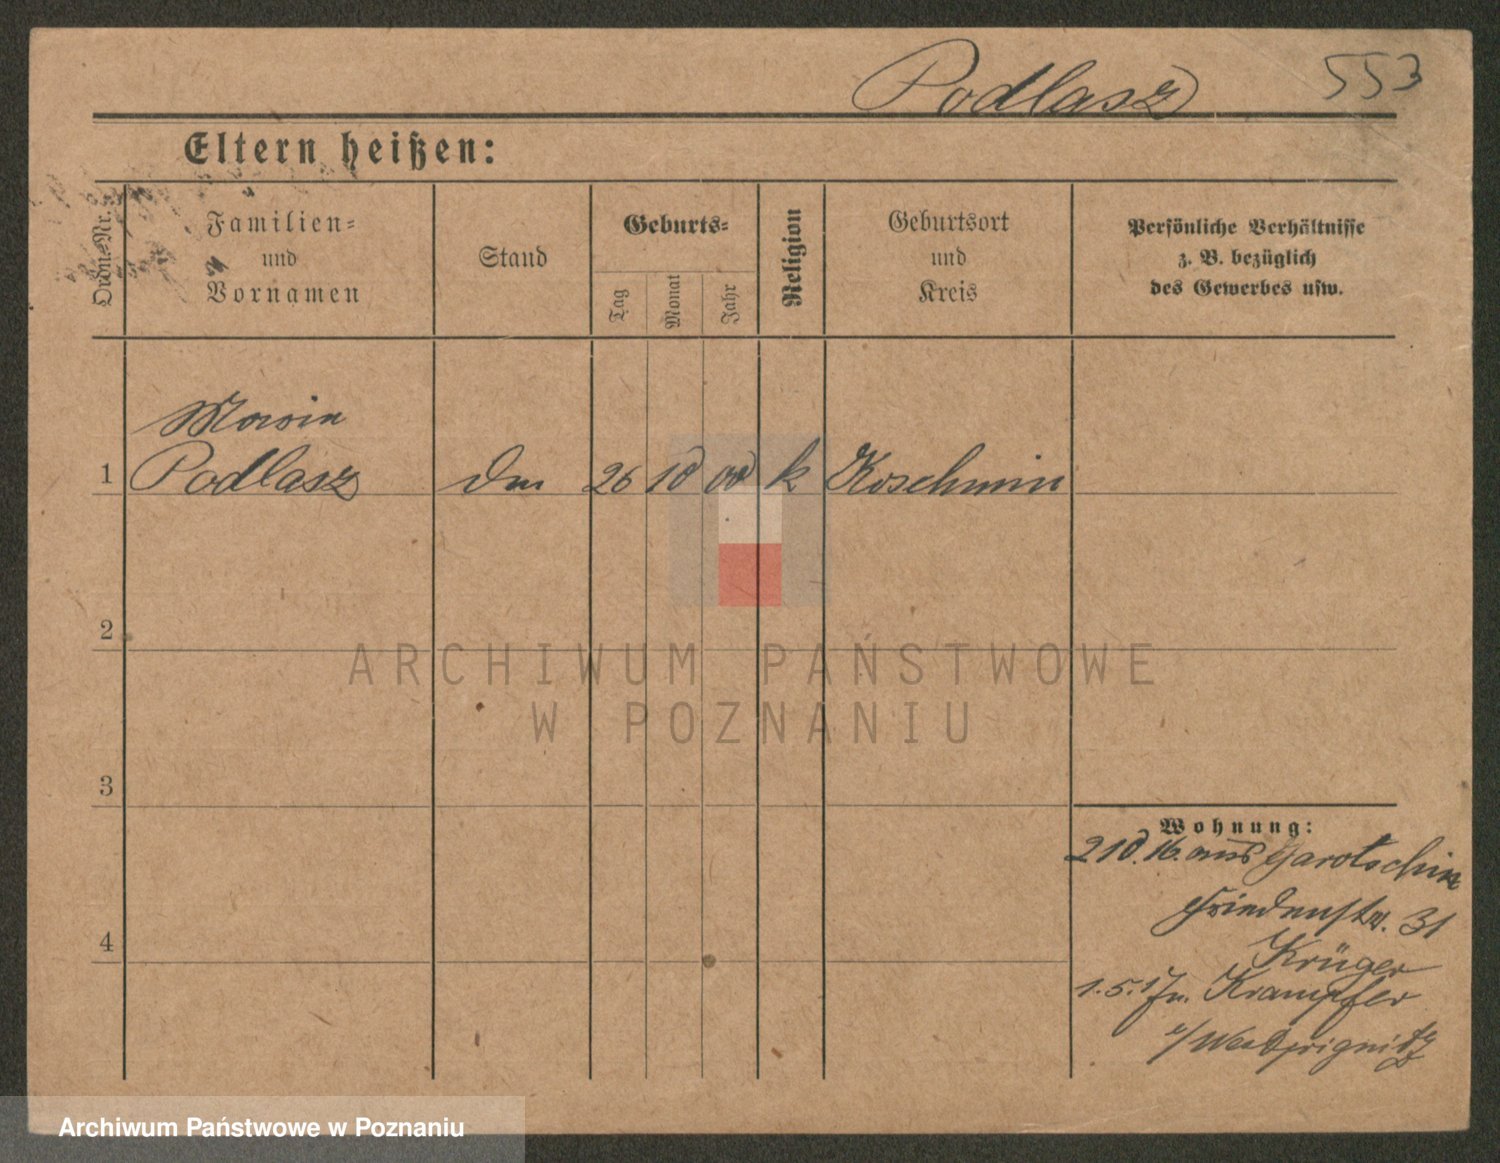 Podlasz 553
Eltern heißen:
Ordn.-Nr.
Familien-
und
Vornamen
Stand
Geburts-
Tag
Monat
Jahr
Religion
Geburtsort
und
Kreis
Persönliche Verhältnisse
z. B. bezüglich
des Gewerbes usw.
Maria
1 Podlasz 26 10 00 k Koschmin
2
ARCHIWUM PAŃSTWOWE
W POZNANIU
3
4
Wohnung:
210.16. aus Jarotschin
Friedenstr. 31
Krüger
1.5.17 n. Krampfer
/Westprignitz
Archiwum Państwowe w Poznaniu